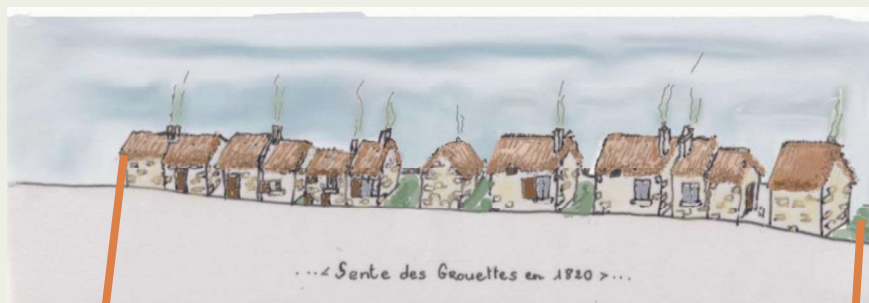 ...< Sente des Grouettes en 1820 >...